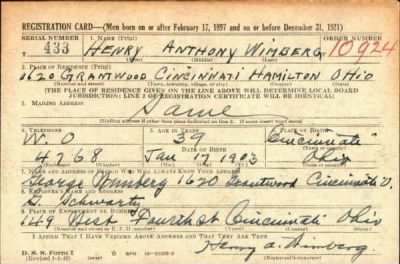 REGISTRATION CARD—(Men born on or after February 17, 1897 and on or before December 31, 1921)
SERIAL NUMBER 1. NAME (Print) ORDER NUMBER
433 HENRY ANTHONY WIMBERG 10924
(First) (Middle) (Last)
2. PLACE OF RESIDENCE (Print)
1620 GRANTWOOD CINCINNATI HAMILTON OHIO
(Number and street) (Town, township, village, or city) (County) (State)
[THE PLACE OF RESIDENCE GIVEN ON THE LINE ABOVE WILL DETERMINE LOCAL BOARD
JURISDICTION; LINE 2 OF REGISTRATION CERTIFICATE WILL BE IDENTICAL]
3. MAILING ADDRESS
Same
[Mailing address if other than place indicated on line 2. If same insert word same]
4. TELEPHONE 5. AGE IN YEARS 6. PLACE OF BIRTH
W.O 39 Cincinnati
DATE OF BIRTH
4768 Jan 17 1903 Ohio
7. NAME AND ADDRESS OF PERSON WHO WILL ALWAYS KNOW YOUR ADDRESS
George Wimberg 1620 Grantwood Cincinnati O.
8. EMPLOYER'S NAME AND ADDRESS
Schwartz
9. PLACE OF EMPLOYMENT OR BUSINESS
149 West Fourth St Cincinnati Ohio
(Number and street or R. F. D. number) (Town) (County) (State)
I AFFIRM THAT I HAVE VERIFIED ABOVE ANSWERS AND THAT THEY ARE TRUE.
D. S. S. Form 1 Henry A. Wimberg